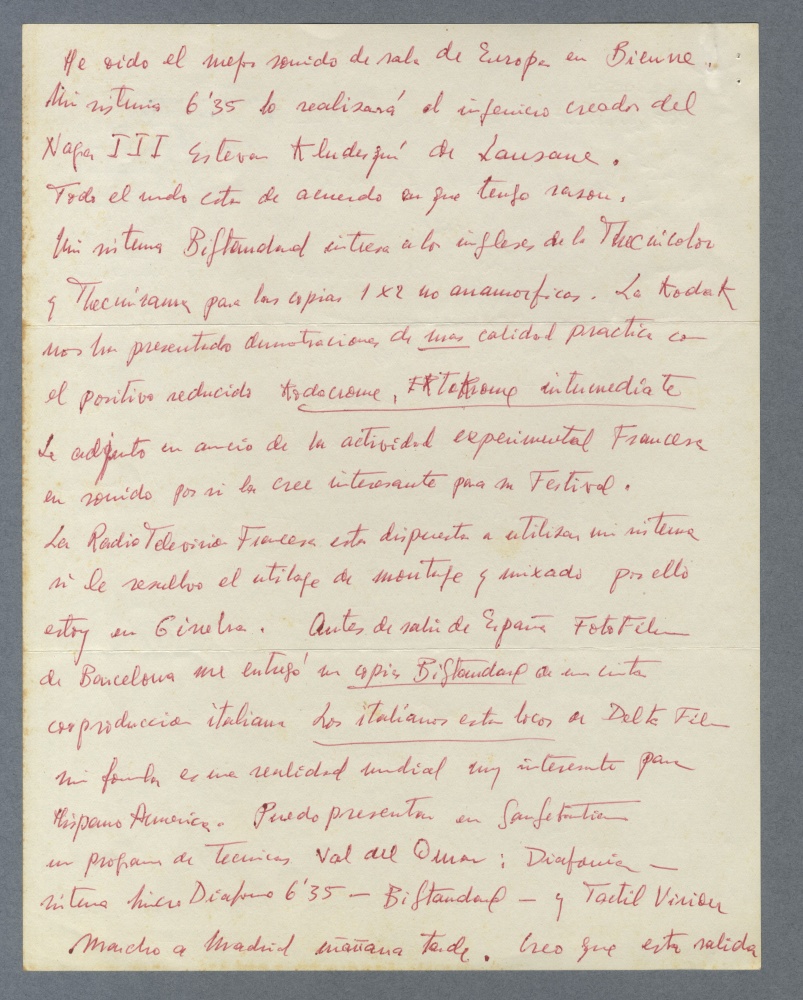 He oido el mejor sonido de sala de Europa en Bienne.
Mi sistema 6'35 lo realizará el ingenicio creador del
Nagra III Estevan Kludesqui de Lausane.
Todo el mdo esta de acuerdo en que tengo rason.
Mi sistema BiStandard intresa a los ingleses de la Thecnicolor
y Thecnirama para las copias 1x2 no anamorficas. La Kodak
nos ha presentado demostraciones de mas calidad practica con
el positivo reducido Kodacrome, EKtaKrome intermediate
Le adjunto un anucio de la actividad experimental Francesa
en sonido por si la cree interesante para su Festival.
La Radio Television Francesa esta dispuesta a utilizar mi sistema
si le resuelvo el utilage de montage y mixado por ello
estoy en Ginebra. Antes de salir de España FotoFilm
de Barcelona me entregó una copia BiStandard de una cinta
corproduccion italiana Los italianos estan locos de Delta Film
mi formula es una realidad mudial muy interesante para
Hispano America. Puedo presentar en San Sebastian
un programa de Tecnicas Val del Omar: Diafonia —
sistema Micro Diafono 6'35 — BiStandard — y Tactil Vision
Marcho a Madrid mañana tarde. Creo que esta salida